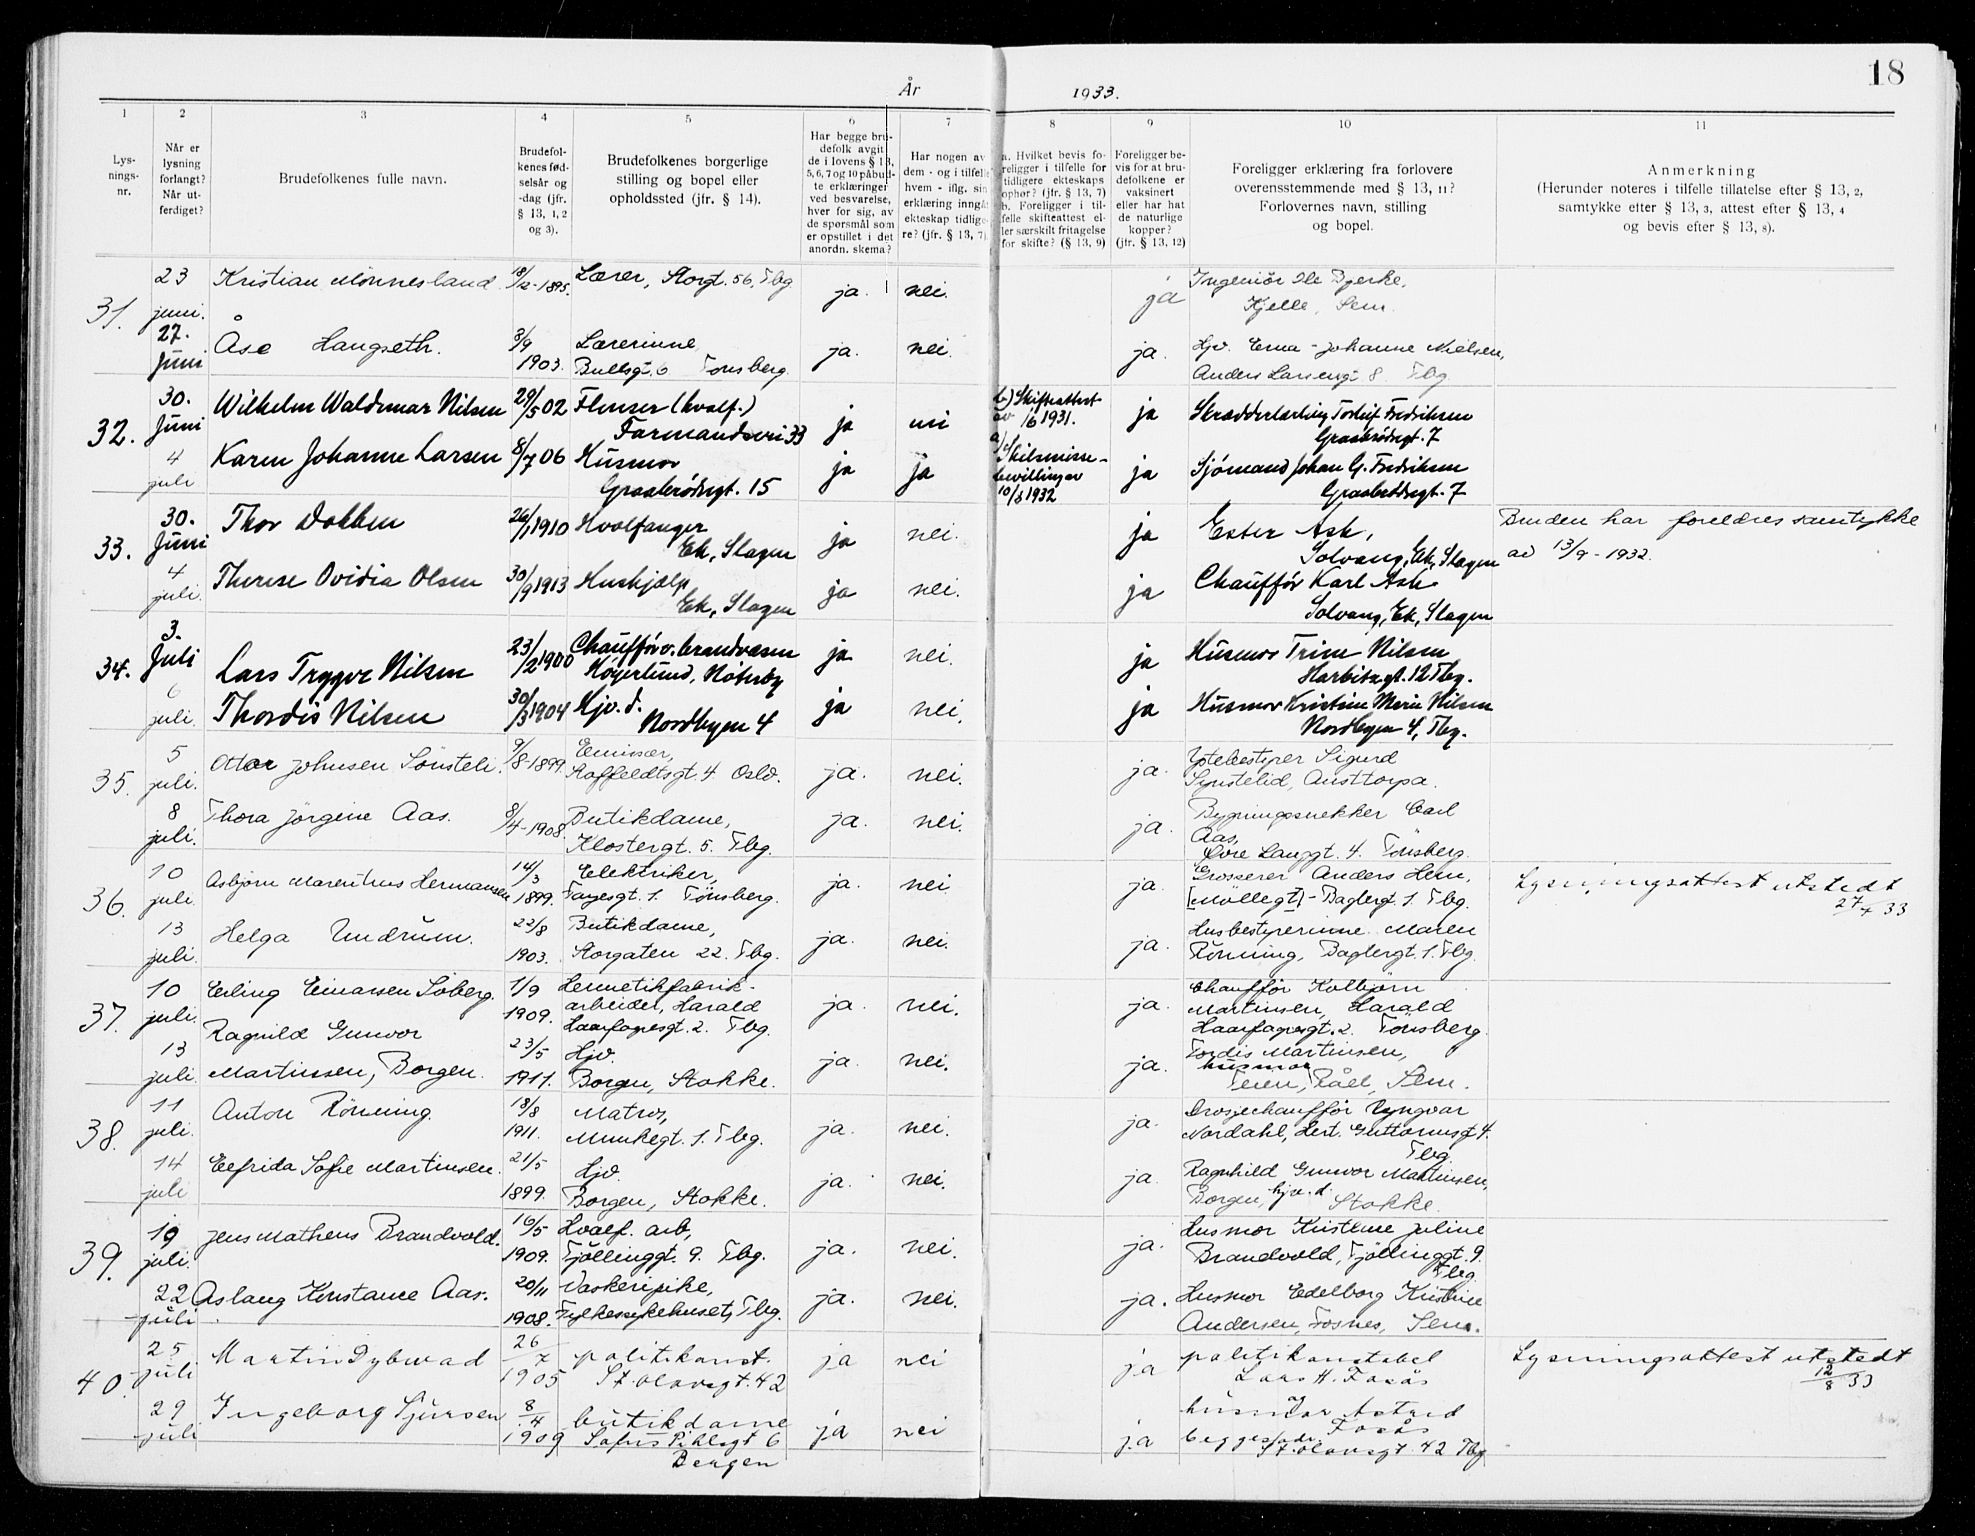 År 1933. 18
1 2 3 4 5 6 7 8 9 10 11
Lys-
nings-
nr.
Når er
lysning
forlangt?
Når ut-
ferdiget?
Brudefolkenes fulle navn.
Brudefol-
kenes fød-
selsår og
-dag (jfr.
§ 13, 1, 2
og 3).
Brudefolkenes borgerlige
stilling og bopel eller
opholdssted (jfr. § 14).
Har begge bru-
defolk avgit
de i lovens § 13,
5, 6, 7 og 10 påbud-
te erklæringer
ved besvarelse,
hver for sig, av
de spørsmål som
er opstillet i det
anordn. skema?
Har nogen av
dem - og i tilfelle
hvem - iflg. sin
erklæring inngåt
ekteskap tidlige-
re? (jfr. § 13, 7)
a. Hvilket bevis fo-
religger i tilfelle for
tidligere ekteskaps
ophør? (jfr. § 13, 7)
b. Foreligger i til-
felle skifteattest el-
ler særskilt fritagelse
for skifte? (§ 13, 9)
Foreligger be-
vis for at bru-
defolkene er
vaksinert
eller har hat
de naturlige
kopper?
(jfr. § 13, 12)
Foreligger erklæring fra forlovere
overensstemmende med § 13, 11?
Forlovernes navn, stilling
og bopel.
Anmerkning
(Herunder noteres i tilfelle tillatelse efter § 13, 2,
samtykke efter § 13, 3, attest efter § 13, 4
og bevis efter § 13, 8).
31. 23 juni. Kristian Mönnesland 18/12-1895. Lærer, Storgt. 56, Tbg ja. nei. ja Ingeniör Ole Bjerke,
Kjelle, Sem.
27. Juni Åse Haugseth. 3/9 1903. Lærerinne, ja. nei. ja. Hjv. Erna Johanne Nielsen,
Bullsgt. 6 Tönsberg. Anders Larsengt 8. Tbg
32. 30. Juni Wilhelm Waldemar Nilsen 29/5 02 Flenser (hvalf.) ja nei b) Skifteattest ja Skrædderlærling Torleif Fredriksen
Farmandsvei 33 av 1/6 1931. Graabrödregt. 7
4 juli Karen Johanne Larsen 8/7 06 Husmor ja ja a) Skilsmisse- ja Sjömand Johan G. Fredriksen
Graabrödregt. 15 bevilling av 10/8 1932 Graabrödregt. 7
33. 30. Juni Thor Dokken 26/1 1910 Hvalfanger ja nei. ja Ester Ask, Bruden har foreldres samtykke
Ek, Slagen Solvang, Ek, Slagen av 13/9 - 1932.
4 juli. Therese Ovidia Olsen 30/9 1913 Hushjælp ja nei. ja Chaufför Karl Ask
Ek, Slagen Solvang, Ek, Slagen
34. 3. Juli Lars Trygve Nilsen 23/2 1900 Chaufför v. brandvæsen ja nei. ja Husmor Trine Nilsen
Höyerlund, Nöteröy Harbitzgt. 12 Tbg.
6 juli. Thordis Nilsen 30/3 1904 Hjv. d. ja nei. ja Husmor Kristine Marie Nilsen
Nordbyen 4 Nordbyen 4, Tbg.
35. 5 juli. Ottar Johnsen Sönsteli. 9/8-1899. Emissær, ja. nei. ja. Ystebestyrer Sigurd
Stoffeldtsgt. 4 Oslo. Synstelid, Austtorpa.
8 juli. Thora Jörgine Aas. 8/4-1908. Butikdame, ja. nei. ja. Bygningssnekker Carl
Klostergt. 5. Tbg. Aas,
Övre Langgt. 4. Tönsberg.
36. 10 juli Asbjörn Marentius Hermansen 14/3 1899. Elektriker, ja. nei. ja. Grosserer Anders Hem, Lysningsattest utstedt
Fayesgt. 1. Tönsberg. [Möllegt] - Baglergt. 1. Tbg. 27/7 33
13 juli. Helga Undrum. 22/8 1903. Butikdame, ja. nei. ja. Husbestyrerinne Maren
Storgaten 22. Tbg. Rönning, Baglergt. 1. Tbg.
37. 10 juli. Erling Einarsen Söberg. 1/9 1909. Hermetikfabrik- ja. nei. ja. Chaufför Kolbjörn
arbeider, Harald Martinsen, Harald
Haarfagresgt. 2. Tbg. Haarfagresgt. 2. Tönsberg.
13 juli. Ragnild Gunvor 23/5 1911. Hjv. ja. nei. ja. Tordis Martinsen,
Martinsen, Borgen. Borgen, Stokke. husmor
Teien, Råel, Sem.
38. 11 juli. Anton Rönning. 18/8 1911. Matros, ja. nei. ja. Drosjechaufför Yngvar
Munkegt. 1. Tbg. Nordahl, Hert. Guttormsgt 4.
Tbg.
14 juli Elfrida Sofie Martinsen. 21/5 1899. Hjv. ja. nei. ja. Ragnhild Gunvor Martinsen,
Borgen, Stokke. Borgen, hjv. d. Stokke.
39. 19 juli. Jens Matheus Brandvold. 16/5 1909. Hvalf. arb, ja. nei. ja. Husmor Kristine Juline
Fjöllinggt. 9. Tbg. Brandvold, Fjöllinggt. 9.
Tbg
22 juli. Aslaug Konstance Aas. 20/11 1908. Vaskeripike, ja. nei. ja. Husmor Edelborg Kristine
Fylkessykehuset, Tbg. Andersen, Fosnes, Sem.
40. 25 juli Martin Dybwad 26/7 1905 politikonst. ja nei ja politikonstabel Lysningsattest utstedt
St. Olavsgt. 42 Lars H. Fosås 12/8 33
29 juli Ingeborg Sjursen 8/4 1909 butikdame ja nei ja husmor Astrid
Sofus Pihlsgt 6 Fosås
Bergen begges adr. St. Olavsgt 42 Tbg